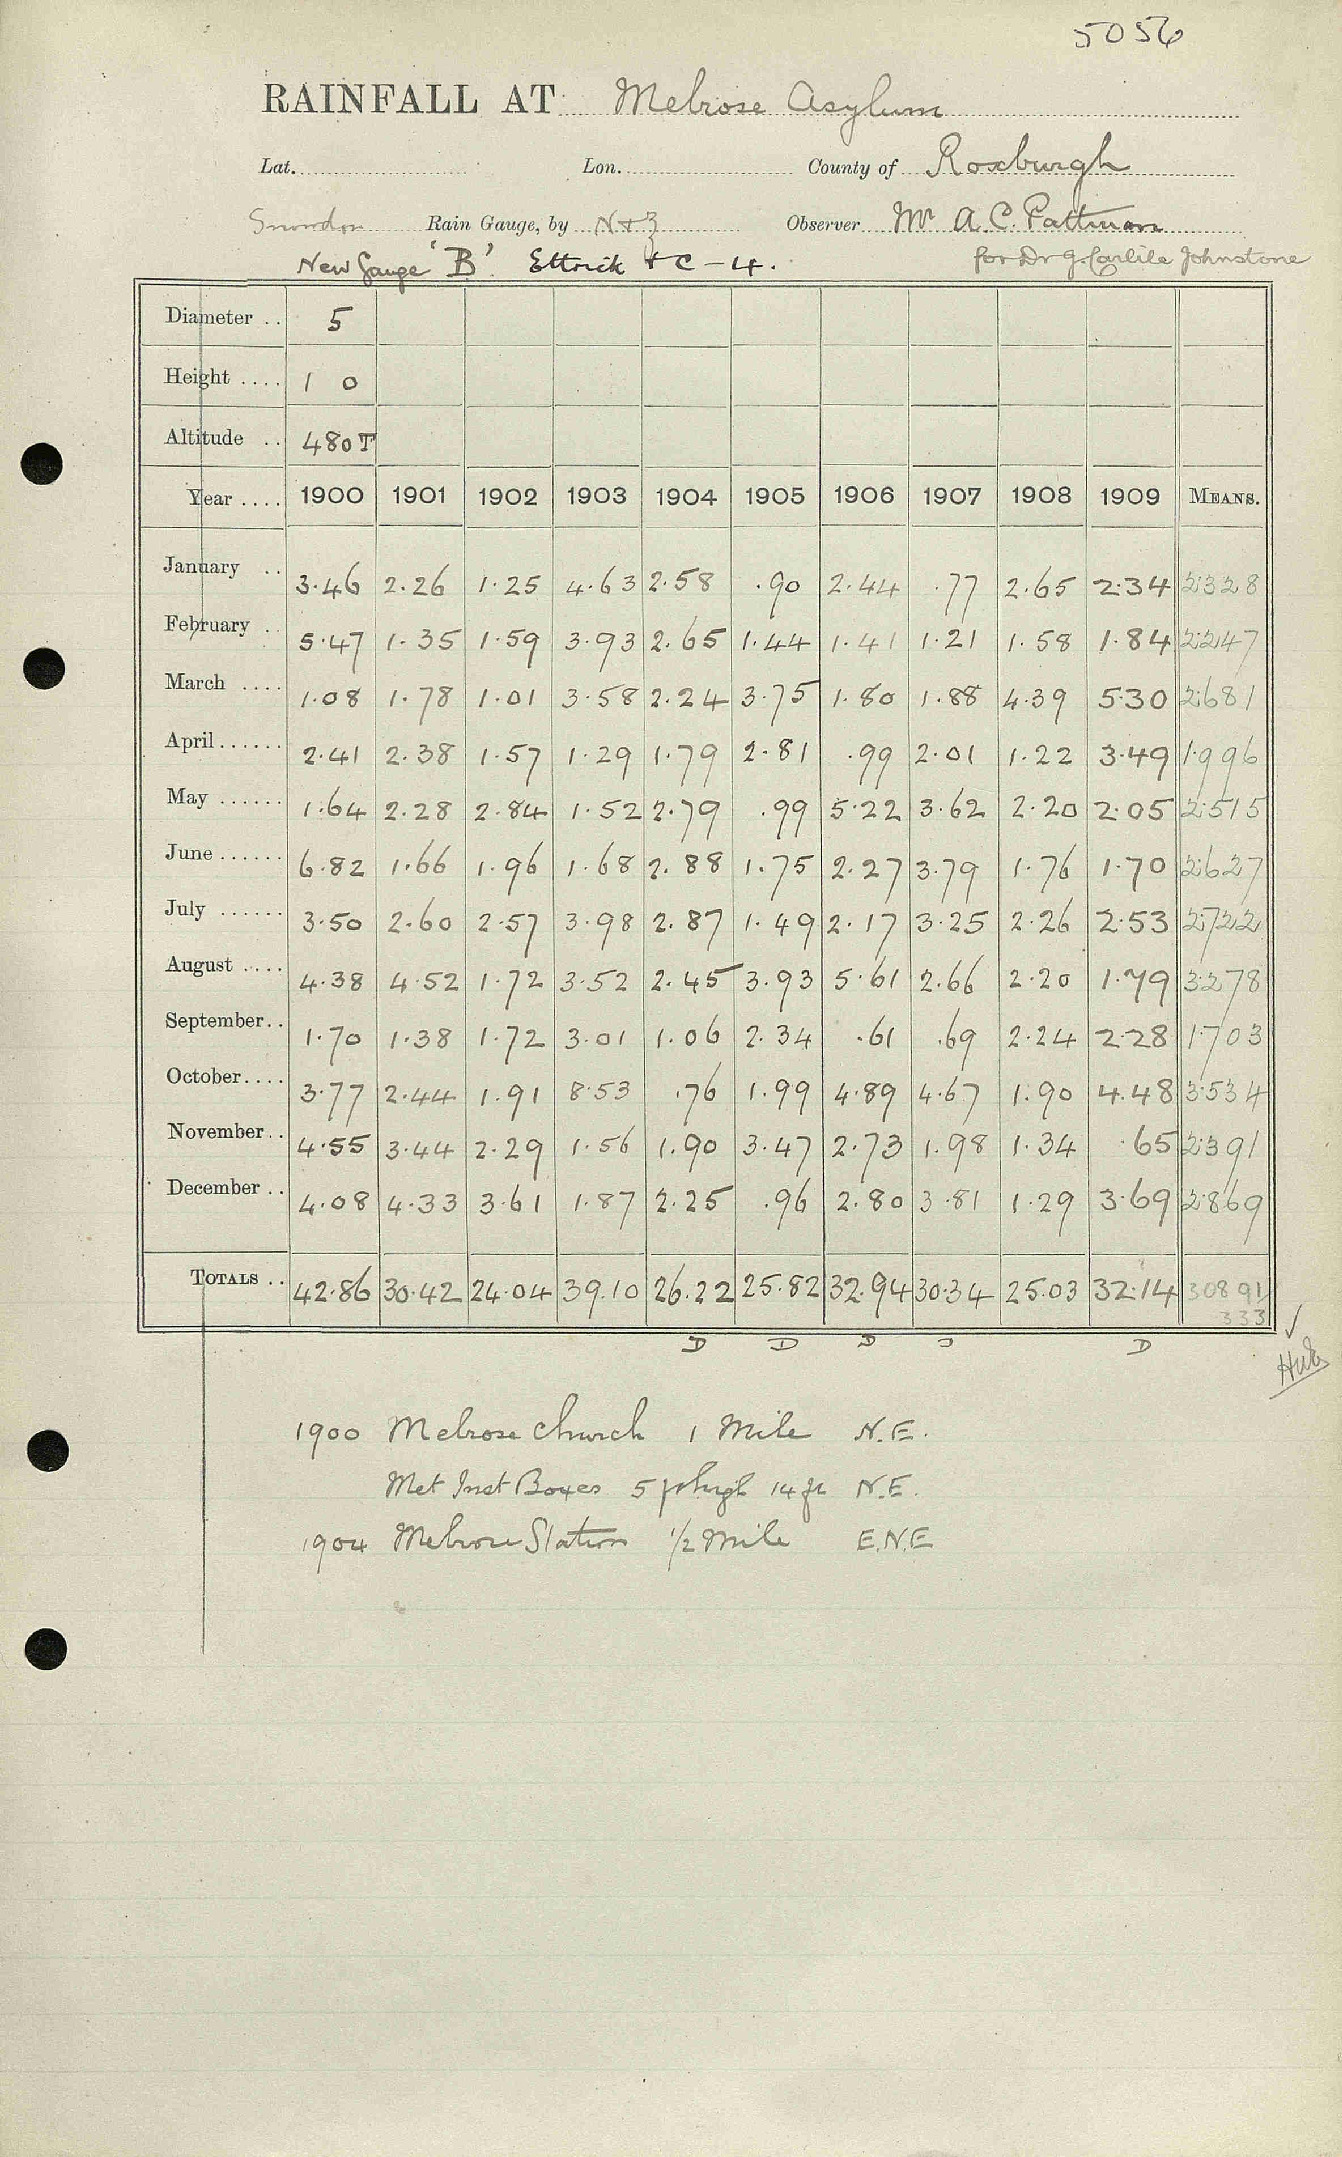 5056
RAINFALL AT Melrose Asylum
Lat. Lon. County of Roxburgh
Snowdon Rain Gauge, by N+Z Observer Mr A. C. Pattman
New Gauge 'B' Ettrick + C - 4. for Dr J. Carlile Johnstone
Diameter .. 5
Height .... 1 0
Altitude .. 480 T
Year .... 1900 1901 1902 1903 1904 1905 1906 1907 1908 1909 MEANS.
January .. 3.46 2.26 1.25 4.63 2.58 .90 2.44 .77 2.65 2.34 2.328
February .. 5.47 1.35 1.59 3.93 2.65 1.44 1.41 1.21 1.58 1.84 2.247
March .... 1.08 1.78 1.01 3.58 2.24 3.75 1.80 1.88 4.39 5.30 2.681
April ...... 2.41 2.38 1.57 1.29 1.79 2.81 .99 2.01 1.22 3.49 1.996
May ...... 1.64 2.28 2.84 1.52 2.79 .99 5.22 3.62 2.20 2.05 2.515
June ...... 6.82 1.66 1.96 1.68 2.88 1.75 2.27 3.79 1.76 1.70 2.627
July ...... 3.50 2.60 2.57 3.98 2.87 1.49 2.17 3.25 2.26 2.53 2.722
August .... 4.38 4.52 1.72 3.52 2.45 3.93 5.61 2.66 2.20 1.79 3.278
September .. 1.70 1.38 1.72 3.01 1.06 2.34 .61 .69 2.24 2.28 1.703
October .... 3.77 2.44 1.91 8.53 .76 1.99 4.89 4.67 1.90 4.48 3.534
November .. 4.55 3.44 2.29 1.56 1.90 3.47 2.73 1.98 1.34 .65 2.391
December .. 4.08 4.33 3.61 1.87 2.25 .96 2.80 3.81 1.29 3.69 2.869
TOTALS .. 42.86 30.42 24.04 39.10 26.22 25.82 32.94 30.34 25.03 32.14 308 91
333
D D D D D
1900 Melrose Church 1 Mile N.E.
Met Inst Boxes 5 14 ft N.E.
1904 Melrose Station 1/2 Mile E.N.E